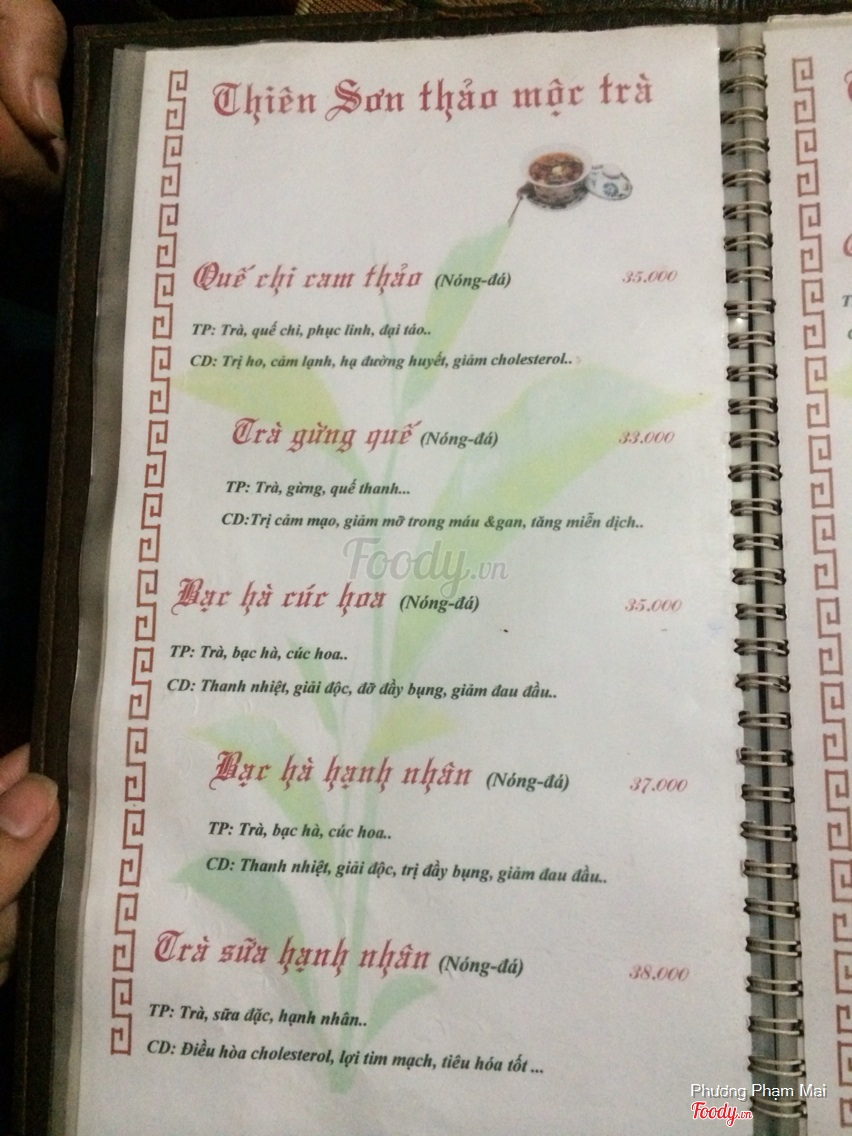 Thiên Sơn thảo mộc trà
Quế chi cam thảo (Nóng-đá) 35.000
TP: Trà, quế chi, phục linh, đại táo..
CD: Trị ho, cảm lạnh, hạ đường huyết, giảm cholesterol..
Trà gừng quế (Nóng-đá) 33.000
TP: Trà, gừng, quế thanh...
CD:Trị cảm mạo, giảm mỡ trong máu &gan, tăng miễn dịch..
Foody.vn
Bạc hà cúc hoa (Nóng-đá) 35.000
TP: Trà, bạc hà, cúc hoa..
CD: Thanh nhiệt, giải độc, đỡ đầy bụng, giảm đau đầu..
Bạc hà hạnh nhân (Nóng-đá) 37.000
TP: Trà, bạc hà, cúc hoa..
CD: Thanh nhiệt, giải độc, trị đầy bụng, giảm đau đầu..
Trà sữa hạnh nhân (Nóng-đá) 38.000
TP: Trà, sữa đặc, hạnh nhân..
CD: Điều hòa cholesterol, lợi tim mạch, tiêu hóa tốt ...
Phương Phạm Mai
Foody.vn